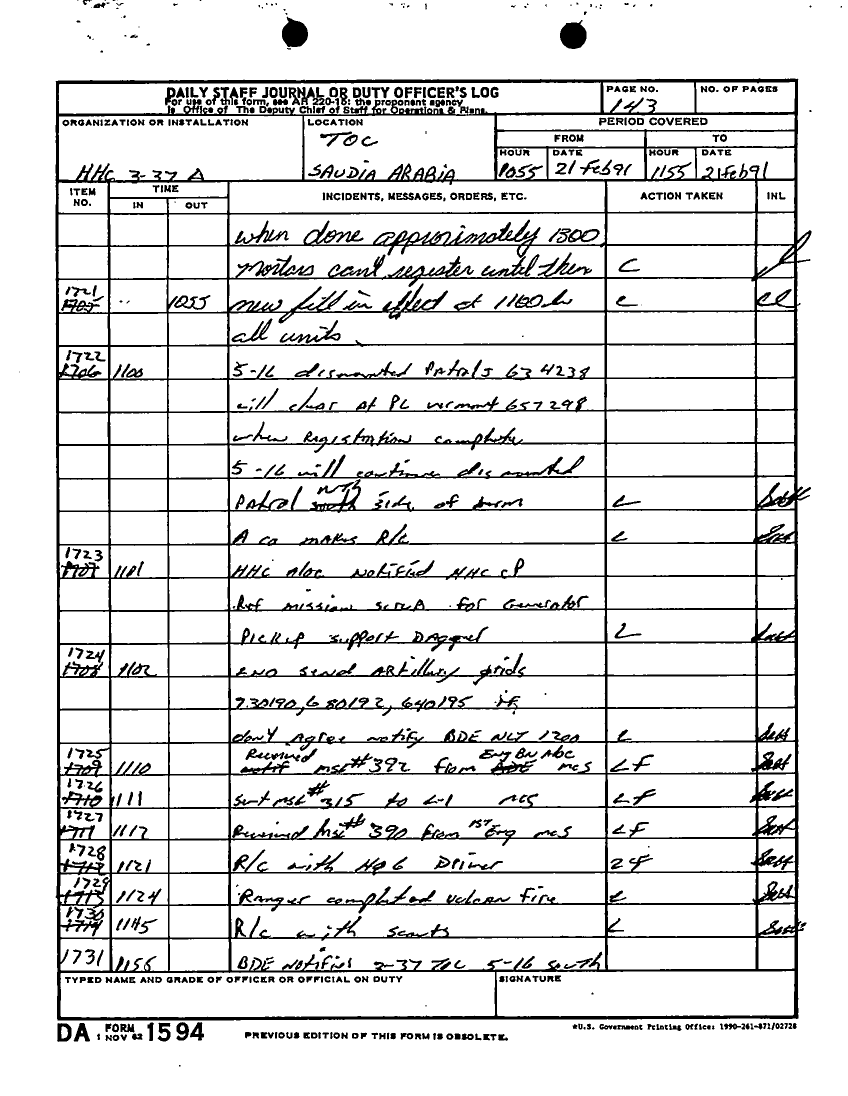 DAILY STAFF JOURNAL OR DUTY OFFICER'S LOG
For use of this form, see AR 220-15; the proponent agency
is Office of The Deputy Chief of Staff for Operations & Plans.
PAGE NO.
143
NO. OF PAGES
ORGANIZATION OR INSTALLATION
HHC 3-37 A
LOCATION
TOC
SAUDIA ARABIA
PERIOD COVERED
FROM
TO
HOUR DATE HOUR DATE
1055 21 Feb 91 1155 21 Feb 91
ITEM NO.
TIME
IN OUT
INCIDENTS, MESSAGES, ORDERS, ETC.
ACTION TAKEN
INL
when done approximately 1300
Mortars can't register until then C
1721 1055 new fill in effect at 1100 hr C
all units.
1722 1100 5-16 dismounted Patrols 634238
will clear at PL vermont 657298
when Registration complete
5-16 will continue dismounted
Patrol North side of berm L
A co makes R/c L
1723 1101 HHC aloc notified HHC CP
Ref mission for Generator
Pickup support Dagger L
1724 1102 send ARtillery grids
730190, 680192, 640195 if
don't Agree notify BDE NLT 1200 L
1725 1110 Received msg# 392 from Eng Bn mcs LF
1726 1111 sent msg# 315 to mcs LF
1727 1112 Received Msg# 390 from 1st Eng mcs LF
1728 1121 R/c with HQ6 Driver 2F
1729 1124 Ranger completed vulcan Fire L
1730 1145 R/c with scouts L
1731 1156 BDE Notifies 3-37 TOC 5-16 south
TYPED NAME AND GRADE OF OFFICER OR OFFICIAL ON DUTY
SIGNATURE
DA FORM 1 NOV 62 1594
PREVIOUS EDITION OF THIS FORM IS OBSOLETE.
*U.S. Government Printing Office: 1990-261-871/02728